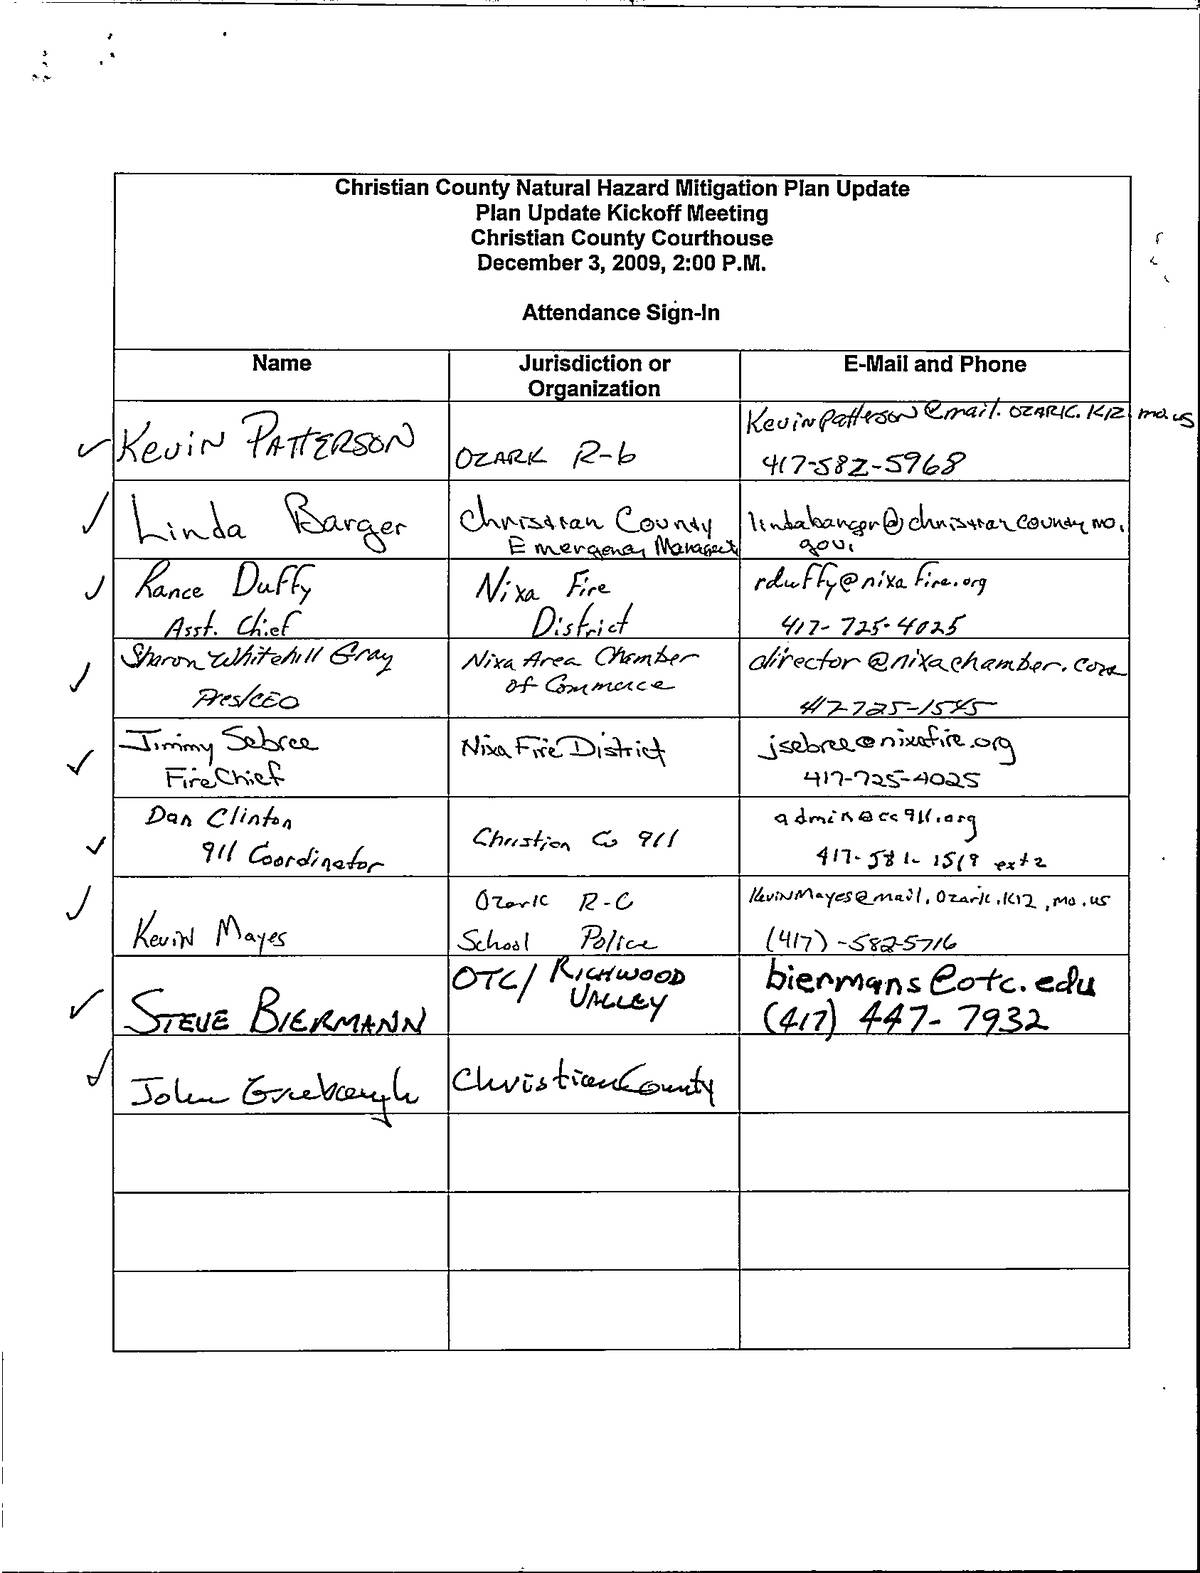 Christian County Natural Hazard Mitigation Plan Update
Plan Update Kickoff Meeting
Christian County Courthouse
December 3, 2009, 2:00 P.M.
Attendance Sign-In
Name
Jurisdiction or
Organization
E-Mail and Phone
Kevin PATTERSON
OZARK R-6
Kevinpatterson@mail.OZARK.K12.mo.us
417-582-5968
Linda Barger
Christian County
Emergency
lindabarger@christiancountymo.
gov.
Rance Duffy
Asst. Chief
Nixa Fire
District
rduffy@nixafire.org
417-725-4025
Sharon Whitehill Gray
Pres/CEO
Nixa Area Chamber
of Commerce
director@nixachamber.com
417-725-1545
Jimmy Sebree
Fire Chief
Nixa Fire District
jsebree@nixafire.org
417-725-4025
Dan Clinton
911 Coordinator
Christian Co 911
admin@cc911.org
417-581-1519 ext 2
Kevin Mayes
Ozark R-6
School Police
KevinMayes@mail.Ozark.K12.mo.us
(417)-582-5716
STEVE BIERMANN
OTC/RICHWOOD
VALLEY
biermans@otc.edu
(417) 447-7932
John
Christian County